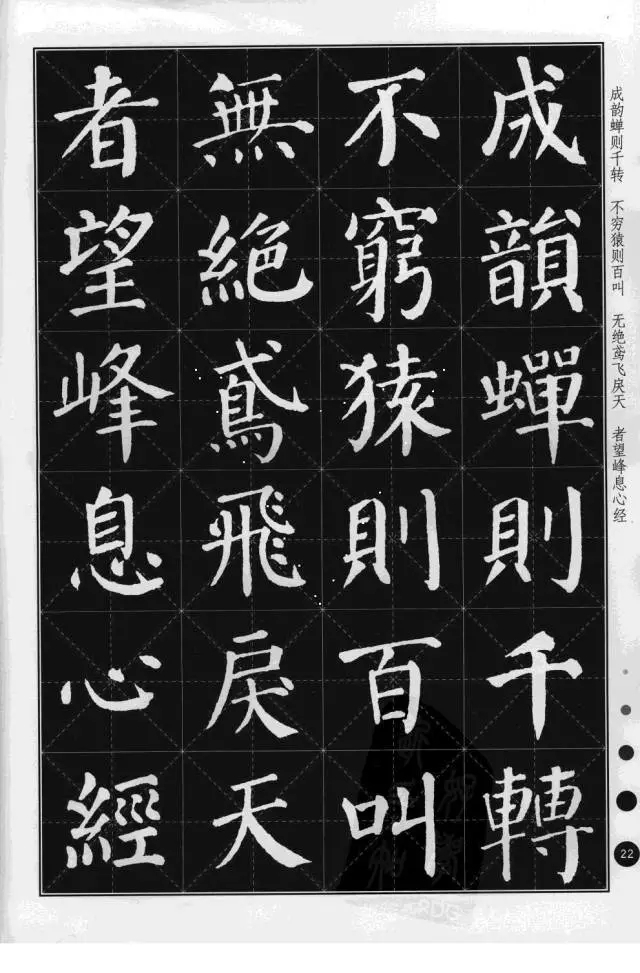 成韻蟬則千轉
不窮猿則百叫
無絶鳶飛戾天
者望峰息心經
成韵蝉则千转 不穷猿则百叫 无绝鸢飞戾天 者望峰息心经
22
PDG